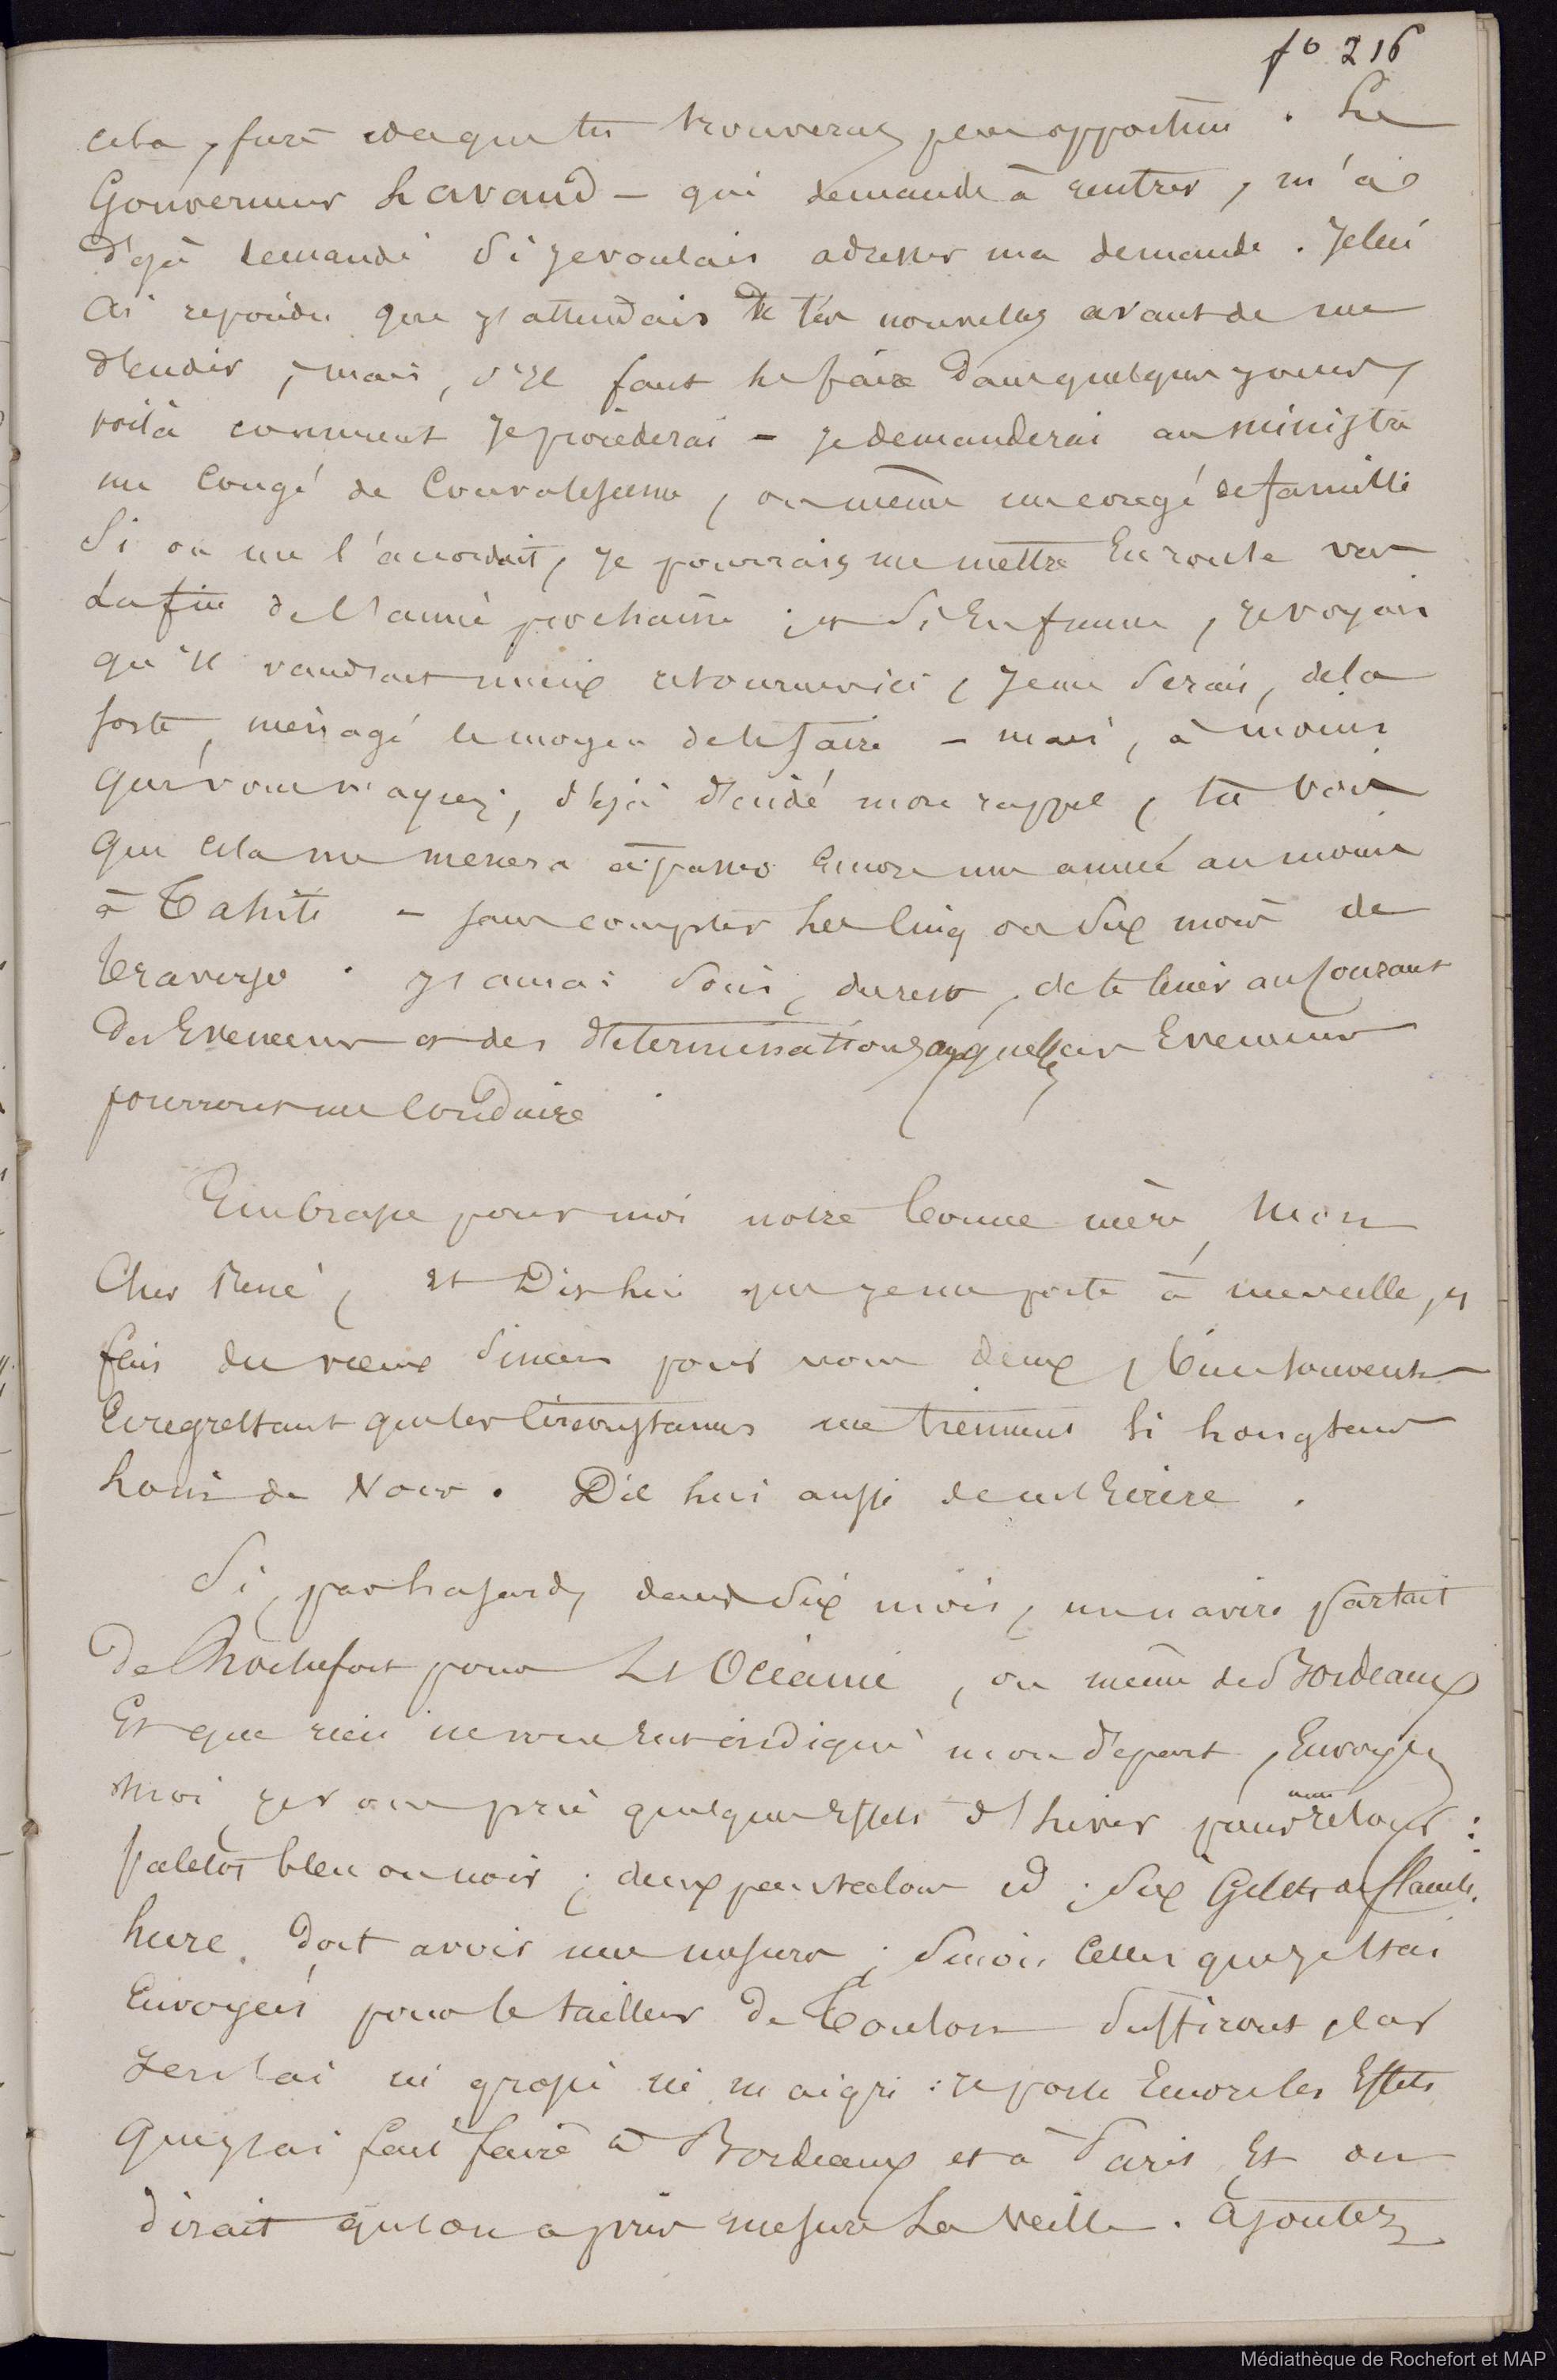 fo 216
cela, sera ce que tu trouveras peu opportun. Le
Gouverneur Lavaud - qui demande à rentrer, m'a
déjà demandé si je voulais adresser ma demande. Je lui
ai repondu que j'attendais de tes nouvelles avant de me
décider, mais, s'il faut le faire dans quelques jours,
voilà comment je procèderai - je demanderai au ministre
un Congé de Convalescence, ou même un congé de famille
Si on me l'accordait, je pourrais me mettre En route vers
La fin de l'année prochaine ; et si En france, je voyais
qu'il vaudrait mieux retourner ici, je me serais, de la
sorte, ménagé le moyen de le faire - mais, à moins
que vous n'ayez, déjà décidé mon rappel, tu vois
Que cela me mènera à passer Encore une année au moins
à Tahiti - sans compter les Cinq ou Six mois de
traversée. J'aurai soin, du reste, de te tenir au Courant
Des Evenements et des déterminations auxquelles ces Evenements
pourront me Conduire
Embrasse pour moi notre bonne mère, Mon
Cher René, et Dis lui que je me porte à merveille, et
fais des vœux Sincères pour vous deux, bien souvent
En regrettant que les Circonstances me tiennent Si Longtemps
Loin de Vous. Dis lui aussi de m'Ecrire.
Si, par hasard, dans Six mois, un navire partait
De Rochefort pour L'Océanie, ou même de Bordeaux
Et que rien ne vous eut indiqué mon départ, Envoyez
moi je vous prie quelques Effets d'hiver pour mon retour :
paletot bleu ou noir ; deux pantalons id ; Six Gilets de flanelle.
doit avoir une mesure ; Sinon Celles que je t'ai
Envoyées pour le tailleur de Toulon Suffiront, Car
Je n'ai ni grossi ni maigri : je porte Encore les Effets
Que j'ai fait faire à Bordeaux et à Paris Et on
dirait qu'on a pris mesure La Veille. Ajoutez
Médiathèque de Rochefort et MAP